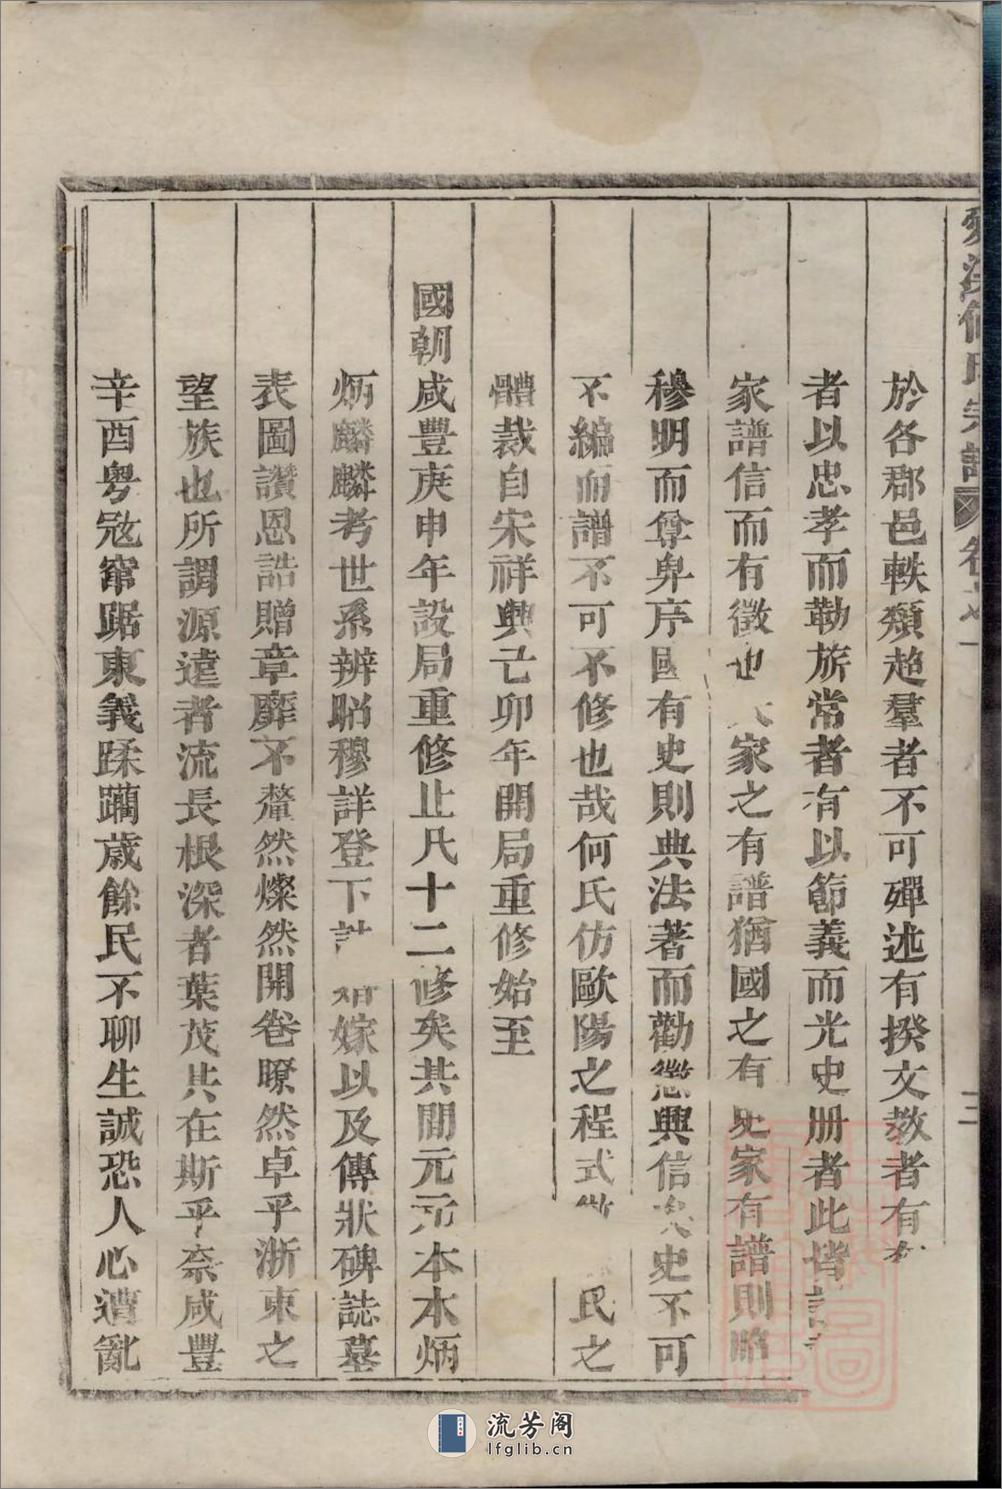 何氏宗譜 卷之一 三
於各郡邑軼類超羣者不可殫述有揆文教者有
者以忠孝而勒旂常者有以節義而光史册者此皆
家譜信而有徵也家之有譜猶國之有史家有譜則昭
穆明而尊卑序國有史則典法著而勸懲興信矣史不可
不編而譜不可不修也哉何氏仿歐陽之程式 氏之
體裁自宋祥興己卯年開局重修始至
國朝咸豐庚申年設局重修止凡十二修矣其間元元本本炳
炳麟麟考世系辨昭穆詳登下 嫁以及傳狀碑誌墓
表圖讚恩誥贈章靡不釐然燦然開卷瞭然卓乎浙東之
望族也所謂源遠者流長根深者葉茂其在斯乎奈咸豐
辛酉粤冦窜踞東義蹂躪歲餘民不聊生誠恐人心遭亂
流芳阁
lfglib.cn